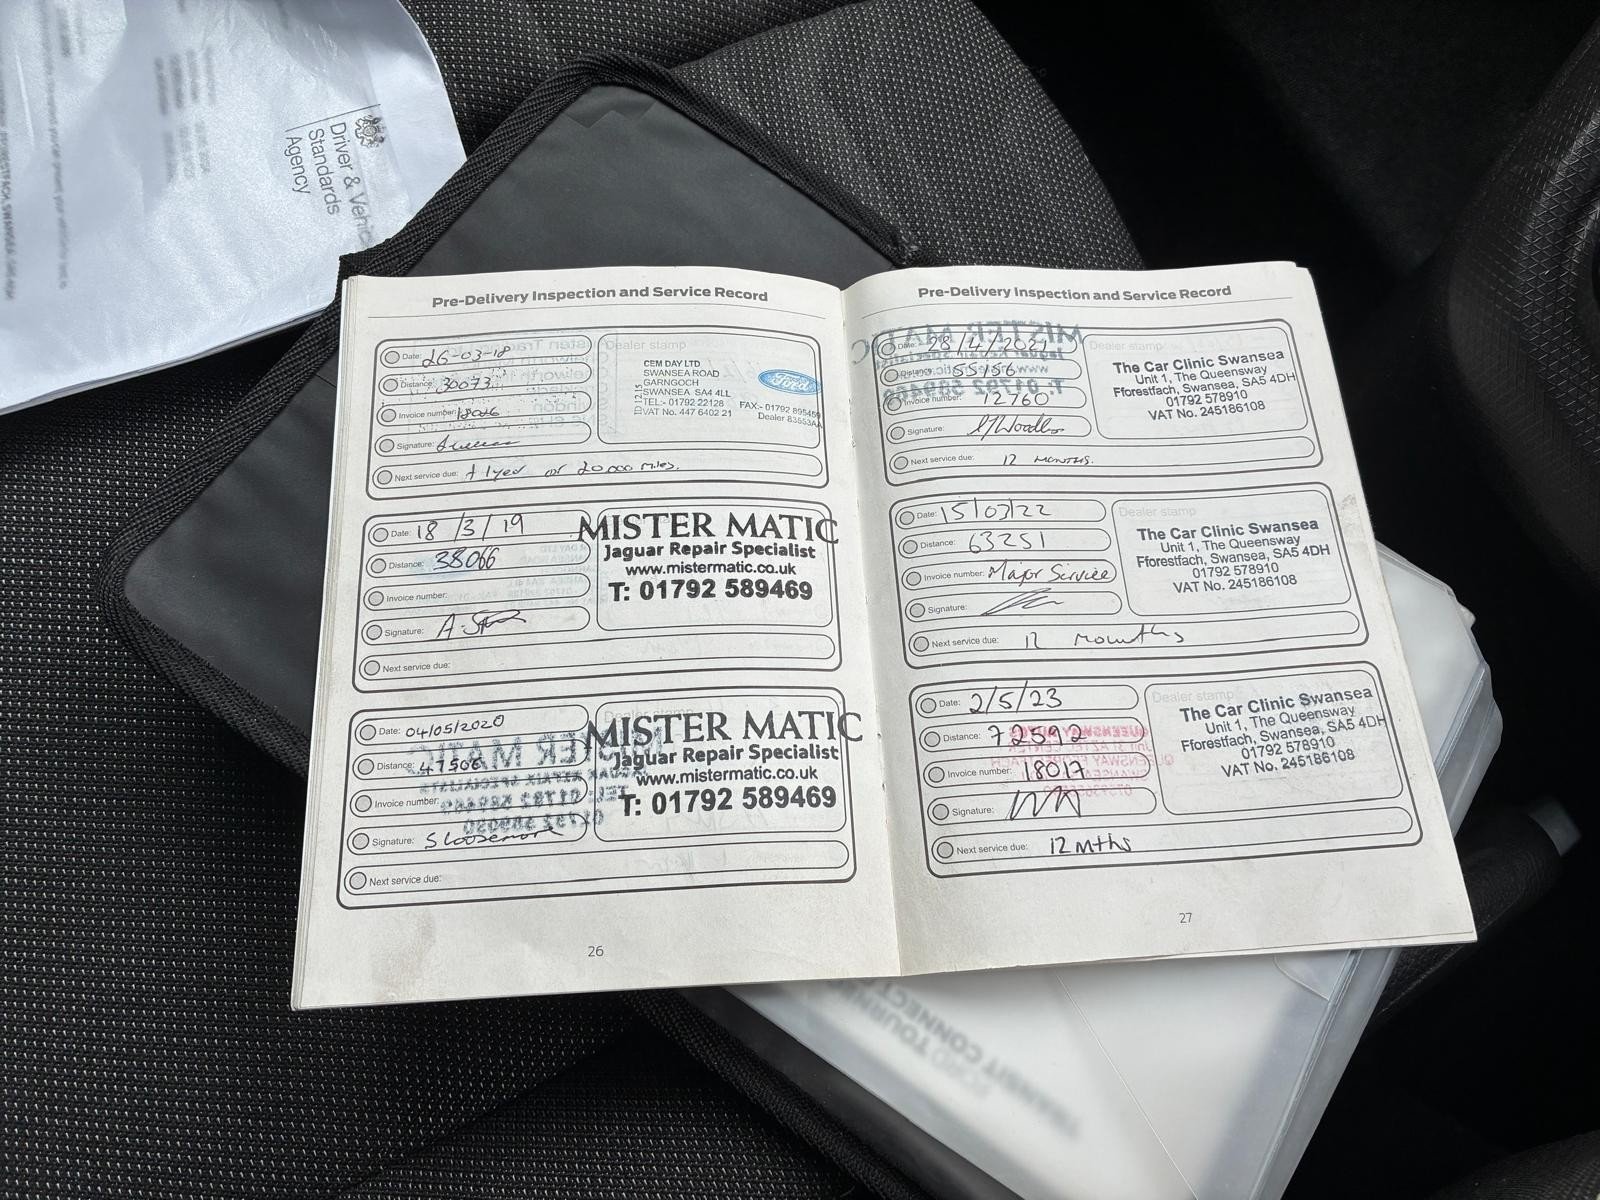 Driver & Vehicle
Standards
Agency
Pre-Delivery Inspection and Service Record
Date: 26-03-18
Distance: 30073
Invoice number: 18026
Signature:
Next service due: + 1 year or 20 000 miles.
Dealer stamp
CEM DAY LTD
SWANSEA ROAD
GARNGOCH
SWANSEA SA4 4LL
TEL:- 01792 22128
FAX:- 01792 895459
VAT No. 447 6402 21
Dealer 83553AA
ID 12.15
Ford
Date: 18/3/19
Distance: 38066
Invoice number:
Signature:
Next service due:
MISTER MATIC
Jaguar Repair Specialist
www.mistermatic.co.uk
T: 01792 589469
Date: 04/05/2020
Distance: 47506
Invoice number:
Signature: S Loosemore
Next service due:
Dealer stamp
MISTER MATIC
Jaguar Repair Specialist
www.mistermatic.co.uk
T: 01792 589469
26
Pre-Delivery Inspection and Service Record
Date: 28/4/2021
Distance: 55156
Invoice number: 12760
Signature:
Next service due: 12 MONTHS.
Dealer stamp
The Car Clinic Swansea
Unit 1, The Queensway
Fforestfach, Swansea, SA5 4DH
01792 578910
VAT No. 245186108
Date: 15/03/22
Distance: 63251
Invoice number: Major Service
Signature:
Next service due: 12 Mounths
Dealer stamp
The Car Clinic Swansea
Unit 1, The Queensway
Fforestfach, Swansea, SA5 4DH
01792 578910
VAT No. 245186108
Date: 2/5/23
Distance: 72592
Invoice number: 18017
Signature:
Next service due: 12 Mths
Dealer stamp
The Car Clinic Swansea
Unit 1, The Queensway
Fforestfach, Swansea, SA5 4DH
01792 578910
VAT No. 245186108
27
FORD TOURNEO
TRANSIT CONNECT